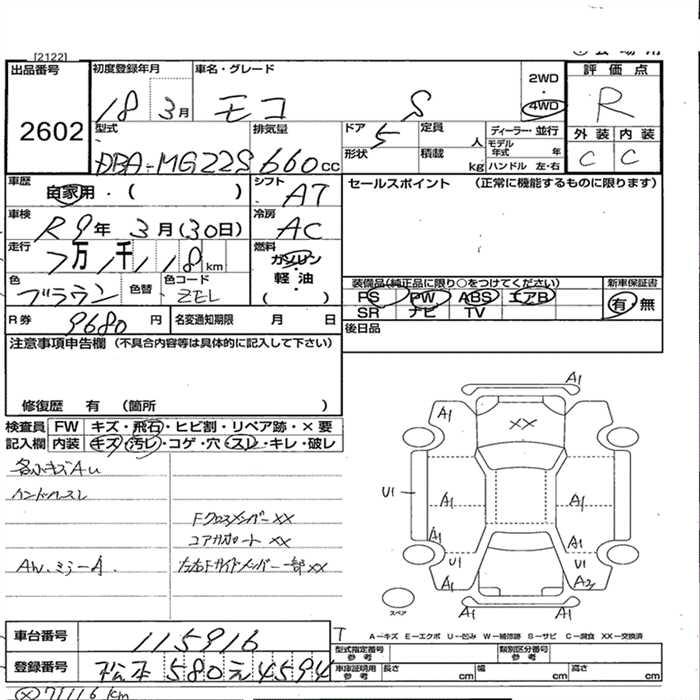 [2122]
出品番号
2602
初度登録年月
18 3月
車名・グレード
モコ S
2WD
4WD
評価点
R
外装 内装
C C
型式
DBA-MG22S
排気量
660cc
ドア
5
形状
定員
人
積載
kg
ディーラー・並行
モデル年式 年
ハンドル 左・右
車歴
自家用・( )
シフト
AT
セールスポイント (正常に機能するものに限ります)
車検
R9年 3月(30日)
冷房
AC
走行
7万1千118km
燃料
ガソリン
軽・油
( )
色
ブラウン
色替
色コード
ZEL
装備品(純正品に限り○をつけてください)
PS PW ABS エアB
SR ナビ TV
新車保証書
有 無
R券
9680円
名変通知期限 月 日
後日品
注意事項申告欄 (不具合内容等は具体的に記入して下さい)
修復歴 有 (箇所 )
検査員 FW キズ・飛石・ヒビ割・リペア跡・×要
記入欄 内装 キズ・汚レ・コゲ・穴・スレ・キレ・破レ
各小キズAU
ハンドルスレ
Fクロスメンバー XX
コアサポート XX
AW.ミラーA.
左右Fサイドメンバー一部XX
A1
A1 XX A1
U1 A1 A1
A1 A1
U1 U1
A1 A2
A1 A1
スペア
A-キズ E-エクボ U-凹み W-補修跡 S-サビ C-腐食 XX-交換済
車台番号
115916
登録番号
松本 580 え 4594
型式指定番号
参考
類別区分番号
参考
車庫証明用
参考
長さ cm 幅 cm 高さ cm
71116km